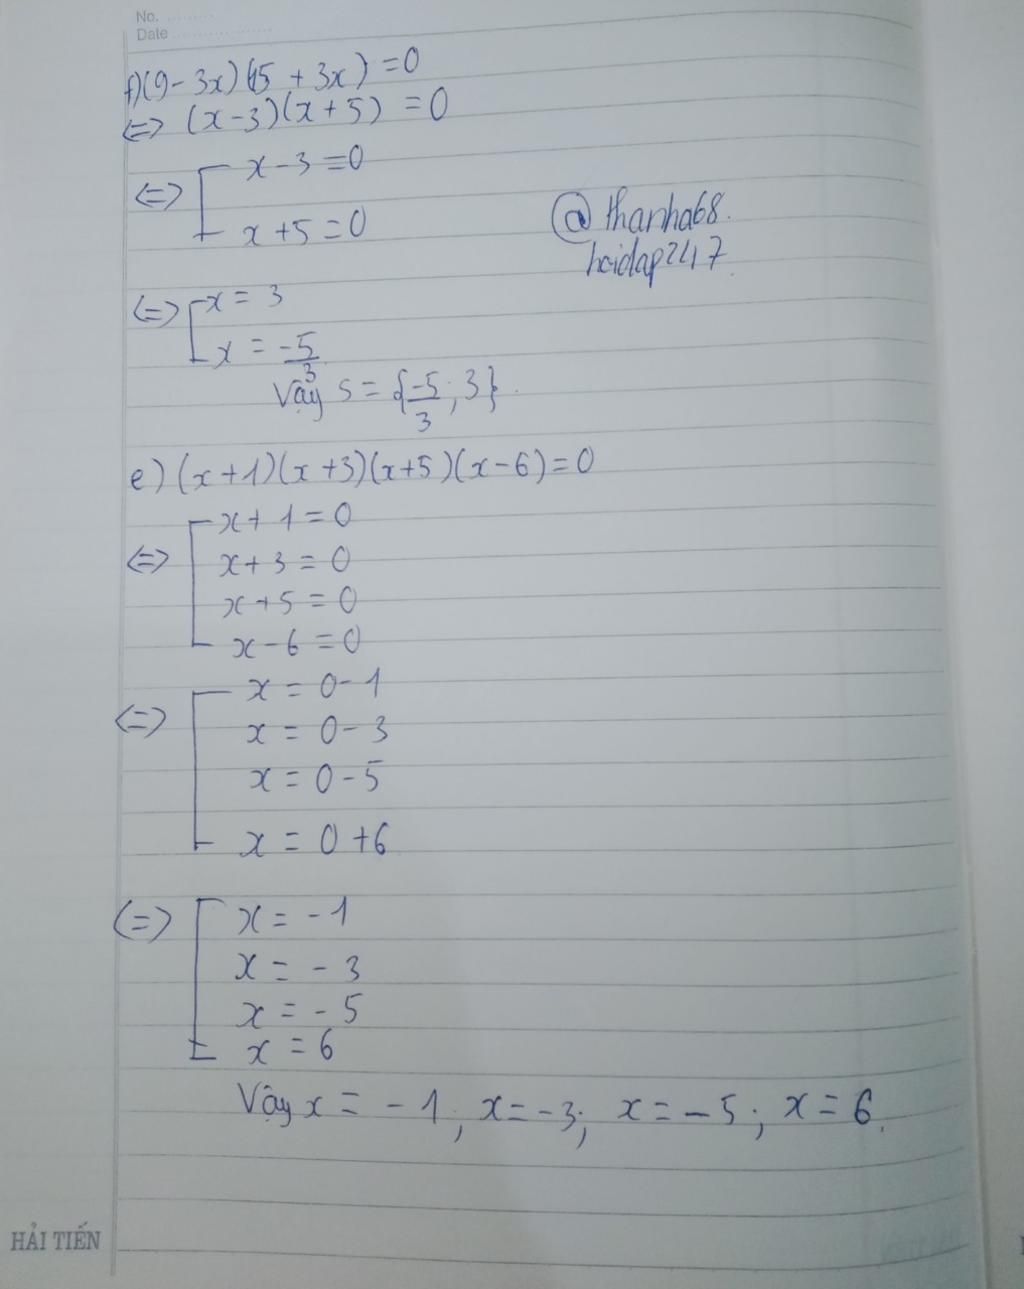 No. ..........
Date ....................
f) (9 - 3x)(15 + 3x) = 0
<=> (x - 3)(x + 5) = 0
<=> [ x - 3 = 0
x + 5 = 0
@thanha68.
hoidap247.
<=> [ x = 3
x = -5/3
Vậy S = {-5/3; 3}.
e) (x + 1)(x + 3)(x + 5)(x - 6) = 0
<=> [ x + 1 = 0
x + 3 = 0
x + 5 = 0
x - 6 = 0
<=> [ x = 0 - 1
x = 0 - 3
x = 0 - 5
x = 0 + 6
<=> [ x = - 1
x = - 3
x = - 5
x = 6
Vậy x = - 1; x = - 3; x = - 5; x = 6.
HẢI TIẾN